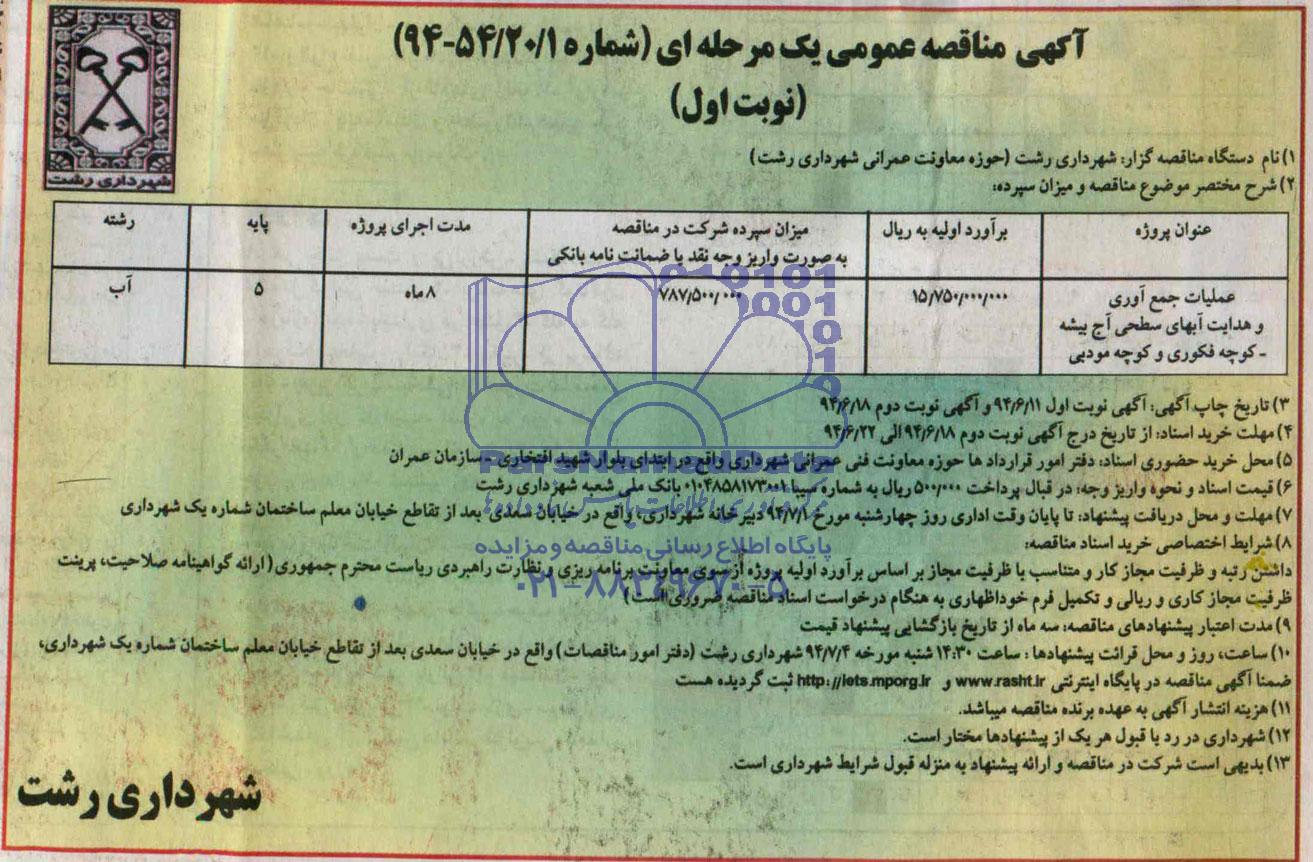 آگهی مناقصه عمومی یک مرحله ای (شماره ۹۴-۵۴/۲۰/۱)
(نوبت اول)
شهرداری رشت
۱) نام دستگاه مناقصه گزار: شهرداری رشت (حوزه معاونت عمرانی شهرداری رشت)
۲) شرح مختصر موضوع مناقصه و میزان سپرده:
عنوان پروژه برآورد اولیه به ریال میزان سپرده شرکت در مناقصه مدت اجرای پروژه پایه رشته
به صورت واریز وجه نقد یا ضمانت نامه بانکی
عملیات جمع آوری ۱۵/۷۵۰/۰۰۰/۰۰۰ ۷۸۷/۵۰۰/۰۰۰ ۸ ماه ۵ آب
و هدایت آبهای سطحی آج بیشه
- کوچه فکوری و کوچه مودبی
۳) تاریخ چاپ آگهی: آگهی نوبت اول ۹۴/۶/۱۱ و آگهی نوبت دوم ۹۴/۶/۱۸
۴) مهلت خرید اسناد: از تاریخ درج آگهی نوبت دوم ۹۴/۶/۱۸ الی ۹۴/۶/۲۲
۵) محل خرید حضوری اسناد: دفتر امور قرارداد ها حوزه معاونت فنی عمرانی شهرداری واقع در ابتدای بلوار شهید افتخاری - سازمان عمران
۶) قیمت اسناد و نحوه واریز وجه: در قبال پرداخت ۵۰۰/۰۰۰ ریال به شماره سیبا ۰۱۰۴۸۵۸۱۷۳۰۰۱ بانک ملی شعبه شهرداری رشت
۷) مهلت و محل دریافت پیشنهاد: تا پایان وقت اداری روز چهارشنبه مورخ ۹۴/۷/۱ دبیرخانه شهرداری، واقع در خیابان سعدی بعد از تقاطع خیابان معلم ساختمان شماره یک شهرداری
۸) شرایط اختصاصی خرید اسناد مناقصه:
داشتن رتبه و ظرفیت مجاز کار و متناسب با ظرفیت مجاز بر اساس برآورد اولیه پروژه از سوی معاونت برنامه ریزی و نظارت راهبردی ریاست محترم جمهوری (ارائه گواهینامه صلاحیت، پرینت
ظرفیت مجاز کاری و ریالی و تکمیل فرم خوداظهاری به هنگام درخواست اسناد مناقصه ضروری است)
۹) مدت اعتبار پیشنهادهای مناقصه: سه ماه از تاریخ بازگشایی پیشنهاد قیمت
۱۰) ساعت، روز و محل قرائت پیشنهادها: ساعت ۱۴:۳۰ شنبه مورخه ۹۴/۷/۴ شهرداری رشت (دفتر امور مناقصات) واقع در خیابان سعدی بعد از تقاطع خیابان معلم ساختمان شماره یک شهرداری،
ضمنا آگهی مناقصه در پایگاه اینترنتی www.rasht.ir و http://iets.mporg.ir ثبت گردیده هست
۱۱) هزینه انتشار آگهی به عهده برنده مناقصه میباشد.
۱۲) شهرداری در رد یا قبول هر یک از پیشنهادها مختار است.
۱۳) بدیهی است شرکت در مناقصه و ارائه پیشنهاد به منزله قبول شرایط شهرداری است.
شهرداری رشت
پایگاه اطلاع رسانی مناقصه و مزایده
۰۲۱-۸۸۳۴۹۶۷۰-۵